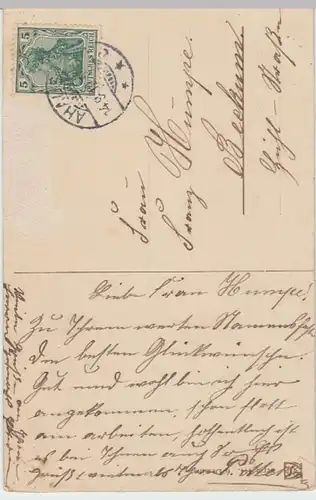 5 5
DEUTSCHES REICH
AHAU
Frau
Franz Humpe.
Beckum
Straße
Liebe Frau Humpe!
Zu Ihrem werten Namensfeste
die besten Glückwünsche.
Gut und wohl bin ich hier
angekommen, schon flott
am arbeiten, hoffentlich ist
es bei Ihnen auch so. Es
grüßt vielmals Ihre